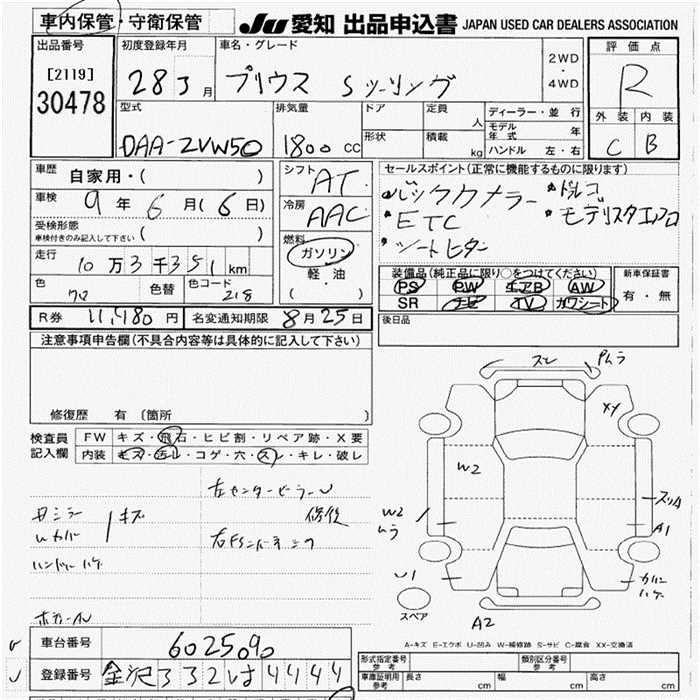 車内保管・守衛保管
JU 愛知 出品申込書 JAPAN USED CAR DEALERS ASSOCIATION
出品番号
[2119]
30478
初度登録年月
28 3月
車名・グレード
プリウス Sツーリング
2WD
・
4WD
評価点
R
外装 内装
C B
型式
DAA-ZVW50
排気量
1800 CC
ドア
形状
定員
人
積載
kg
ディーラー・並行
モデル年式 年
ハンドル 左・右
車歴
自家用・( )
車検
9年6月(6日)
受検形態
車検付きのみ記入して下さい ( )
走行
10万3千351km
色
クロ
色替
色コード
218
シフト
AT
冷房
AAC
燃料
ガソリン
軽・油
( )
セールスポイント(正常に機能するものに限ります)
バックカメラー
ETC
シートヒター
モデリスタエアロ
装備品(純正品に限り○をつけてください)
PS PW エアB AW
SR ナビ TV カワシート
新車保証書
有・無
後日品
R券 11,480円 名変通知期限 8月25日
注意事項申告欄(不具合内容等は具体的に記入して下さい)
修復歴 有 〔箇所 〕
検査員記入欄
FW キズ・飛石・ヒビ割・リペア跡・X要
内装 キズ・汚レ・コゲ・穴・スレ・キレ・破レ
左センターピラー
修復
キズ
ハンドル ハゲ
スレ
XY
W2
W2
A1
U1
カバー
ハゲ
A2
スペア
A-キズ E-エクボ U-凹み W-補修跡 S-サビ C-腐食 XX-交換済
車台番号 6025090
登録番号 金沢332は4444
形式指定番号
参考
類別区分番号
参考
車庫証明用
参考
長さ cm
幅 cm
高さ cm